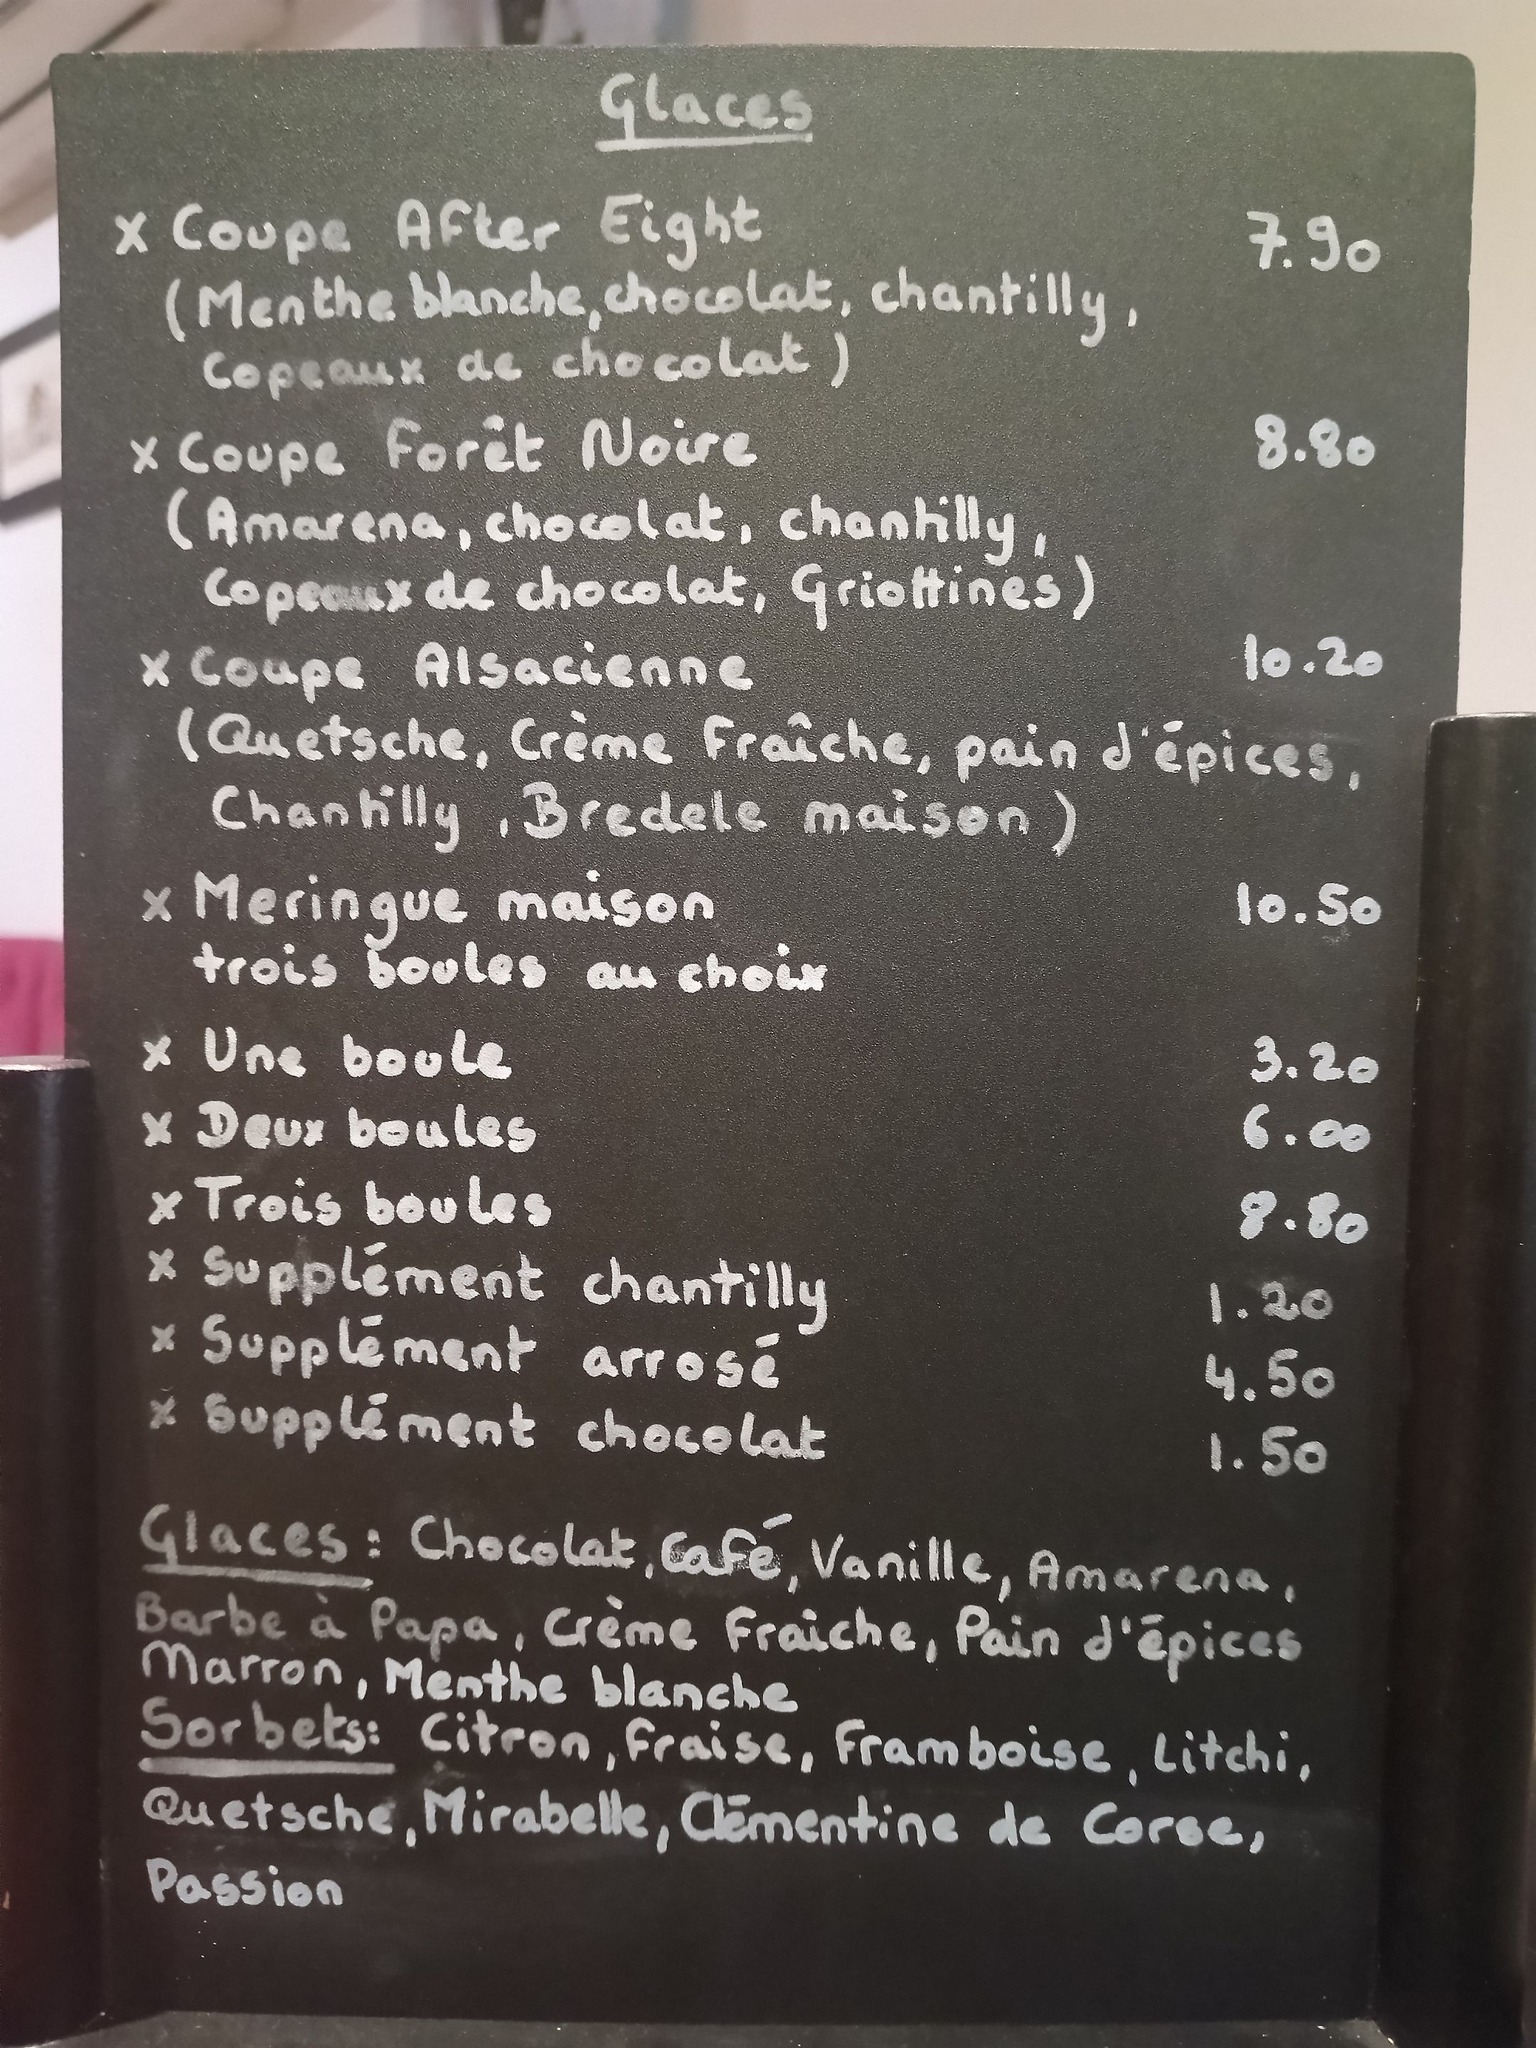 Glaces
x Coupe After Eight 7.90
(Menthe blanche, chocolat, chantilly,
copeaux de chocolat)
x Coupe Forêt Noire 8.80
(Amarena, chocolat, chantilly,
copeaux de chocolat, Griottines)
x Coupe Alsacienne 10.20
(Quetsche, Crème Fraîche, pain d'épices,
Chantilly, Bredele maison)
x Meringue maison 10.50
trois boules au choix
x Une boule 3.20
x Deux boules 6.00
x Trois boules 8.80
x Supplément chantilly 1.20
x Supplément arrosé 4.50
x Supplément chocolat 1.50
Glaces: Chocolat, Café, Vanille, Amarena,
Barbe à Papa, Crème Fraiche, Pain d'épices
Marron, Menthe blanche
Sorbets: Citron, Fraise, Framboise, Litchi,
Quetsche, Mirabelle, Clémentine de Corse,
Passion